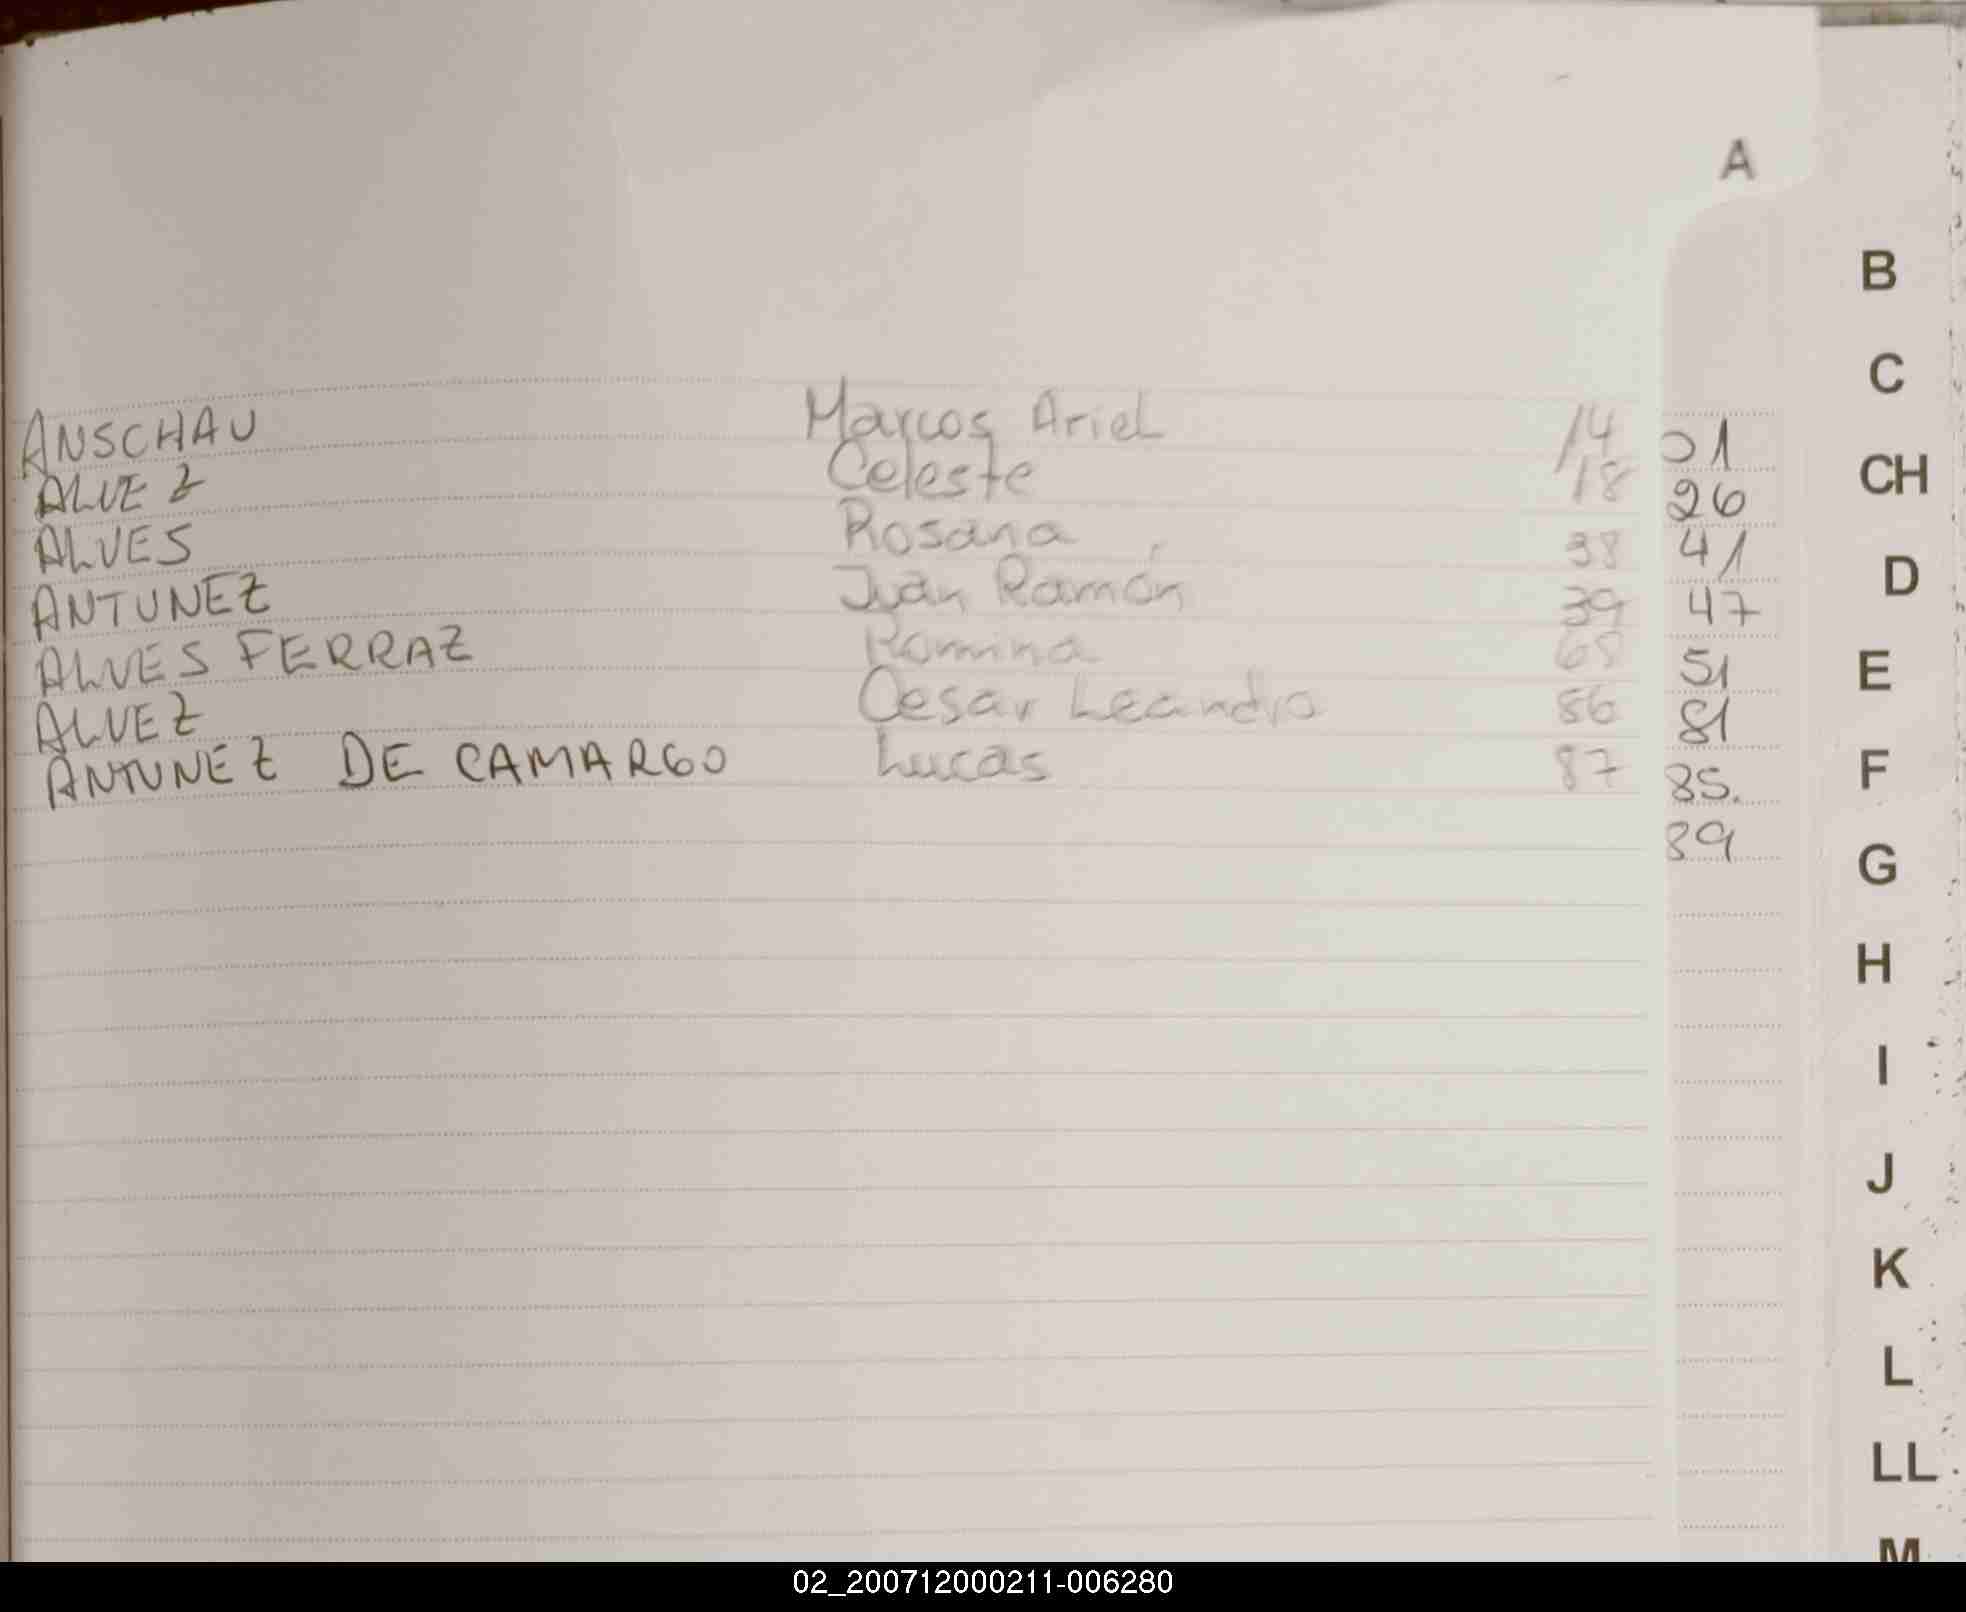 A
ANSCHAU Marcos Ariel 14
ALVEZ Celeste 18
ALVES Rosana 38
ANTUNEZ Juan Ramón 39
ALVES FERRAZ Romina 68
ALVEZ Cesar Leandro 86
ANTUNEZ DE CAMARGO Lucas 87
01
26
41
47
51
81
85.
89
B
C
CH
D
E
F
G
H
I
J
K
L
LL
M
02_200712000211-006280